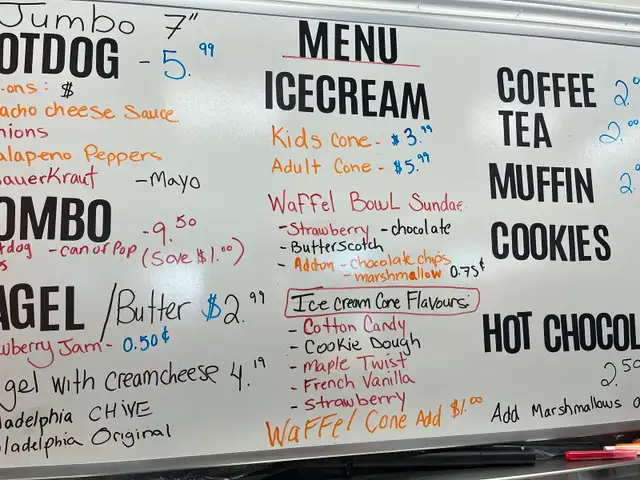 Jumbo 7"
OTDOG - 5.99
-ons: $
acho cheese Sauce
nions
alapeno Peppers
SauerKraut - Mayo
OMBO - 9.50
tdog - can of Pop (Save $1.00)
AGEL / Butter $2.99
wberry Jam - 0.50¢
gel with creamcheese 4.19
ladelphia CHIVE
ladelphia Original
MENU
ICECREAM
Kids Cone - $3.99
Adult Cone - $5.99
Waffel Bowl Sundae
- Strawberry - chocolate
- Butterscotch
- Addon - chocolate chips
- marshmallow 0.75¢
Ice cream Cone Flavours:
- Cotton Candy
- Cookie Dough
- maple Twist
- French Vanilla
- strawberry
Waffel Cone Add $1.00
COFFEE 2.0
TEA 2.00
MUFFIN 2.
COOKIES
HOT CHOCOL
2.50
Add Marshmallows